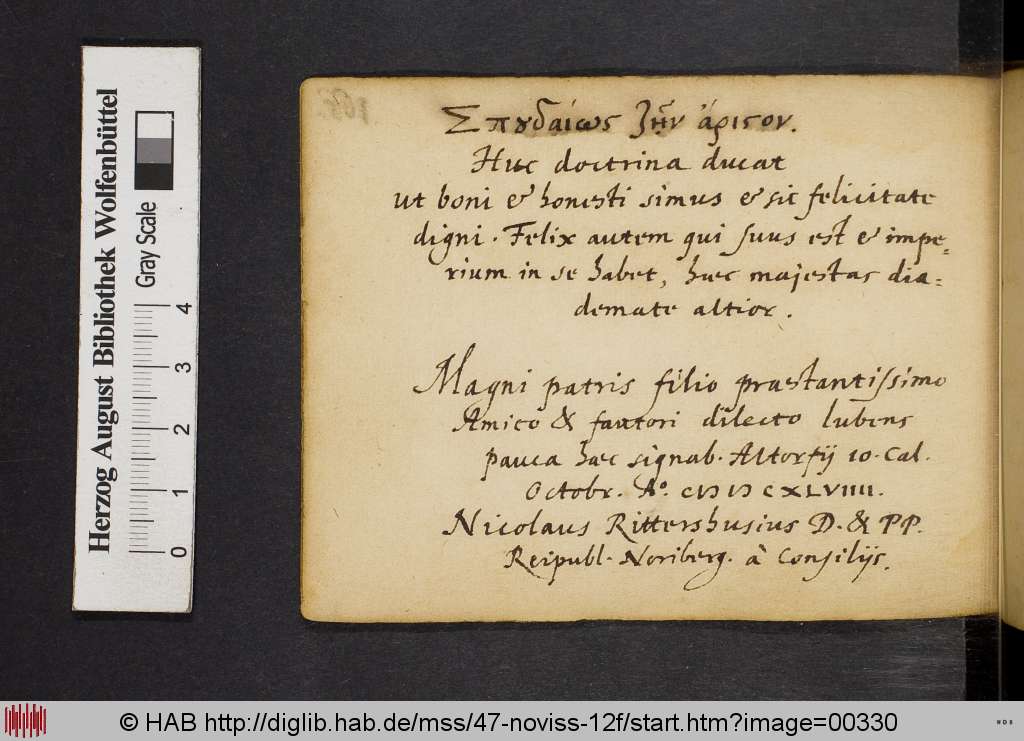 Σπȣδαίως ζῆν ἄριϛον.
Huc doctrina ducat
ut boni & honesti simus & sic felicitate
digni. Felix autem qui suus est & impe=
rium in se habet, haec majestas dia=
demate altior.
Magni patris filio praestantissimo
Amico & fautori dilecto lubens
pauca haec signab. Altorfij 10. Cal.
Octobr. Aº. CIƆ IƆ CXLVIIII.
Nicolaus Rittershusius D. & PP.
Reipubl. Noriberg. à Consilijs.
Herzog August Bibliothek Wolfenbüttel
Gray Scale
0 1 2 3 4
© HAB http://diglib.hab.de/mss/47-noviss-12f/start.htm?image=00330